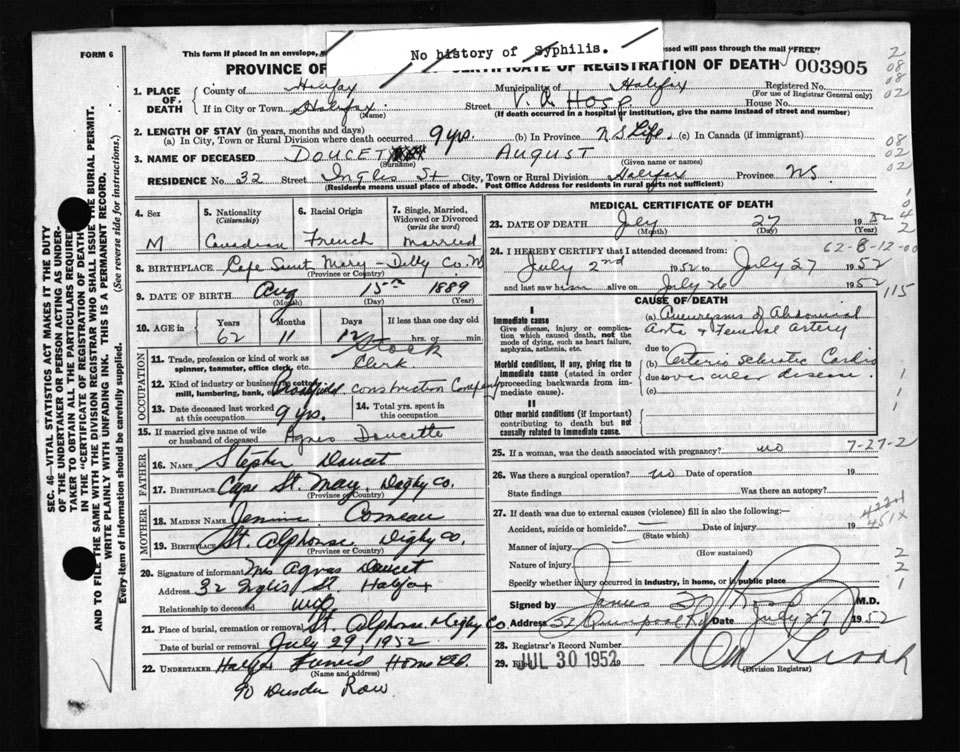 FORM 6
This form if placed in an envelope,
essed will pass through the mail "FREE"
No history of Syphilis.
PROVINCE OF
CERTIFICATE OF REGISTRATION OF DEATH
003905
1. PLACE OF DEATH
County of Halifax
Municipality of Halifax
Registered No.
(For use of Registrar General only)
If in City or Town Halifax
(Name)
Street V. A. Hosp
House No.
(If death occurred in a hospital or institution, give the name instead of street and number)
2. LENGTH OF STAY (in years, months and days)
(a) In City, Town or Rural Division where death occurred 9 yrs. (b) In Province NS Life. (c) In Canada (if immigrant)
3. NAME OF DECEASED DOUCET AUGUST
(Surname) (Given name or names)
RESIDENCE No. 32 Street Inglis St City, Town or Rural Division Halifax Province NS.
(Residence means usual place of abode. Post Office Address for residents in rural parts not sufficient)
4. Sex
M
5. Nationality
(Citizenship)
Canadian
6. Racial Origin
French
7. Single, Married, Widowed or Divorced
(write the word)
Married
8. BIRTHPLACE Cape Saint Mary - Co. NS
(Province or Country)
9. DATE OF BIRTH Aug 15th 1889
(Month) (Day) (Year)
10. AGE in
Years Months Days If less than one day old
62 11 12 hrs. or min.
OCCUPATION
11. Trade, profession or kind of work as spinner, teamster, office clerk, etc. Stock Clerk.
12. Kind of industry or business, cotton mill, lumbering, bank, construction Company
13. Date deceased last worked at this occupation 9 yrs.
14. Total yrs. spent in this occupation
15. If married give name of wife or husband of deceased Agnes Doucette
FATHER
16. NAME Stephen Doucet
17. BIRTHPLACE Cape St. Mary Digby Co.
(Province or Country)
MOTHER
18. MAIDEN NAME Comeau
19. BIRTHPLACE St. Alphonse Digby Co.
(Province or Country)
20. Signature of informant Mrs Agnes Doucet
Address 32 Inglis St. Halifax
Relationship to deceased wife
21. Place of burial, cremation or removal St. Alphonse Digby Co.
Date of burial or removal July 29, 1952
22. UNDERTAKER Halifax Funeral Home Ltd.
(Name and address)
90 Row.
MEDICAL CERTIFICATE OF DEATH
23. DATE OF DEATH July 27 1952
(Month) (Day) (Year)
24. I HEREBY CERTIFY that I attended deceased from:
July 2nd 1952 to July 27 1952
and last saw him alive on July 26 1952
CAUSE OF DEATH
I
Immediate cause
Give disease, injury or complication which caused death, not the mode of dying, such as heart failure, asphyxia, asthenia, etc.
(a) Aneurysms of Abdominal
Aorta & Femoral artery
due to
Morbid conditions, if any, giving rise to immediate cause (stated in order proceeding backwards from immediate cause).
(b) Arterio sclerotic Cardio
due to vascular disease.
(c)
II
Other morbid conditions (if important) contributing to death but not causally related to immediate cause.
25. If a woman, was the death associated with pregnancy? no
7-27-2
26. Was there a surgical operation? no Date of operation 19
State findings Was there an autopsy?
27. If death was due to external causes (violence) fill in also the following:—
Accident, suicide or homicide? Date of injury 19
(State which)
Manner of injury
(How sustained)
Nature of injury
Specify whether injury occurred in industry, in home, or in public place
Signed by James M.D.
Address Date July 27 1952
28. Registrar's Record Number
29. Filed JUL 30 1952 19
(Division Registrar)
62-8-12-00
115
451X
SEC. 46—VITAL STATISTICS ACT MAKES IT THE DUTY
OF THE UNDERTAKER OR PERSON ACTING AS UNDER-
TAKER TO OBTAIN ALL THE PARTICULARS REQUIRED
IN THE "CERTIFICATE OF REGISTRATION OF DEATH"
AND TO FILE THE SAME WITH THE DIVISION REGISTRAR WHO SHALL ISSUE THE BURIAL PERMIT.
WRITE PLAINLY WITH UNFADING INK. THIS IS A PERMANENT RECORD.
Every item of information should be carefully supplied. (See reverse side for instructions.)